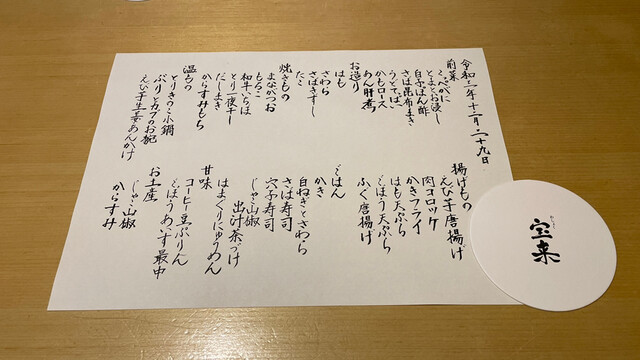 令和二年十二月二十九日
前菜
こっぺがに
とまとお浸し
白子ぽん酢
さば昆布まき
うどてっぱい
かもロース
あん肝煮
お造り
はも
さわら
さばきずし
たこ
焼きもの
まながつお
もろこ
和牛いちぼ
とり一夜干し
だしまき
からすみもち
温もの
とりきのこ小鍋
ぶりとカブのお椀
えび芋生姜あんかけ
揚げもの
えび芋唐揚げ
肉コロッケ
かきフライ
はも天ぷら
ごぼう天ぷら
ふぐ唐揚げ
ごはん
かき
白ねぎとさわら
さば寿司
穴子寿司
じゃこ山椒
出汁茶づけ
はまぐりにゅうめん
甘味
コーヒー豆ぷりん
ごぼうあいす最中
お土産
じゃこ山椒
からすみ
宝来